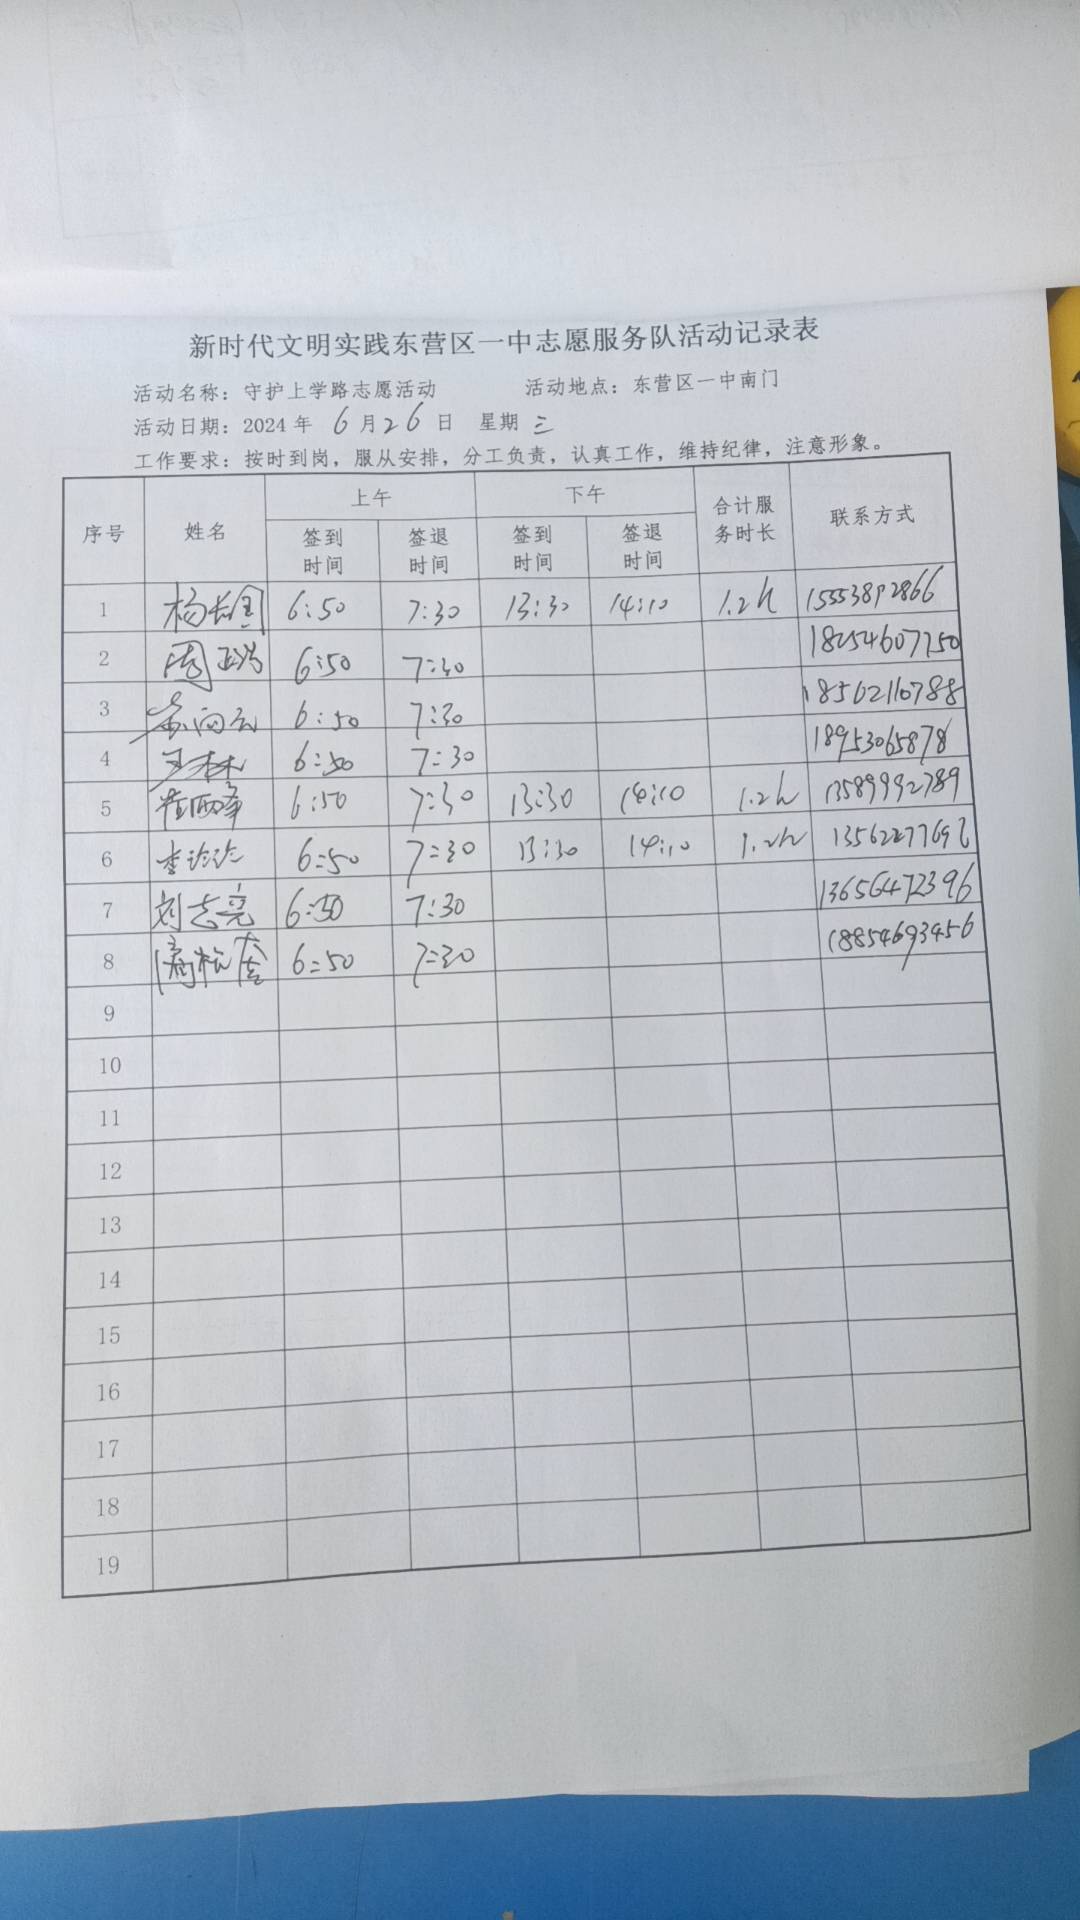 新时代文明实践东营区一中志愿服务队活动记录表
活动名称：守护上学路志愿活动 活动地点：东营区一中南门
活动日期：2024年 6月26日 星期三
工作要求：按时到岗，服从安排，分工负责，认真工作，维持纪律，注意形象。
序号 姓名 上午 下午 合计服务时长 联系方式
签到时间 签退时间 签到时间 签退时间
1 6:50 7:30 13:30 14:10 1.2h 15553892866
2 6:50 7:30 18254607750
3 6:50 7:30 18562110788
4 王林 6:50 7:30 18953065878
5 6:50 7:30 13:30 14:10 1.2h 13589992789
6 6:50 7:30 13:30 14:10 1.2h
7 刘志亮 6:50 7:30 13656472396
8 6:50 7:30 18854693456
9
10
11
12
13
14
15
16
17
18
19